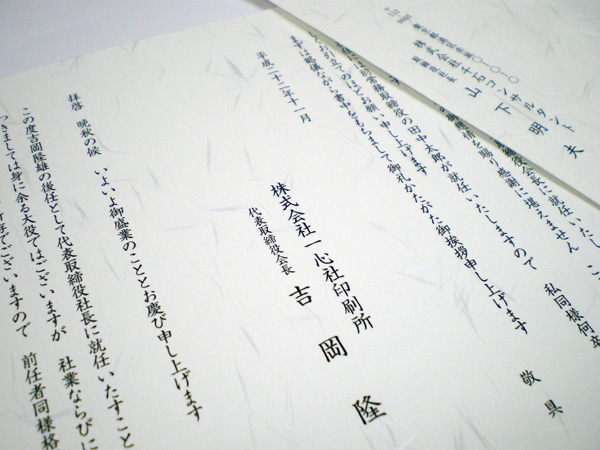 株式会社千石コンサルタント
取締役社長
山下明夫
役会長に就任いたし こ
を賜り感謝に堪えません 私同様何卒
には前常務取締役の田中太郎が就任いたしますので
お引立てのほどお願い申し上げます
まずは略儀ながら書中をもちまして御礼かたがた御挨拶申し上げます
敬具
平成二十二年十一月
株式会社一心社印刷所
代表取締役会長
吉岡隆
拝啓 晩秋の候 いよいよ御盛業のこととお慶び申し上げます
この度吉岡隆雄の後任として代表取締役社長に就任いたすこと
つきましては身に余る大役ではございますが 社業ならびに
存でございますので 前任者同様格